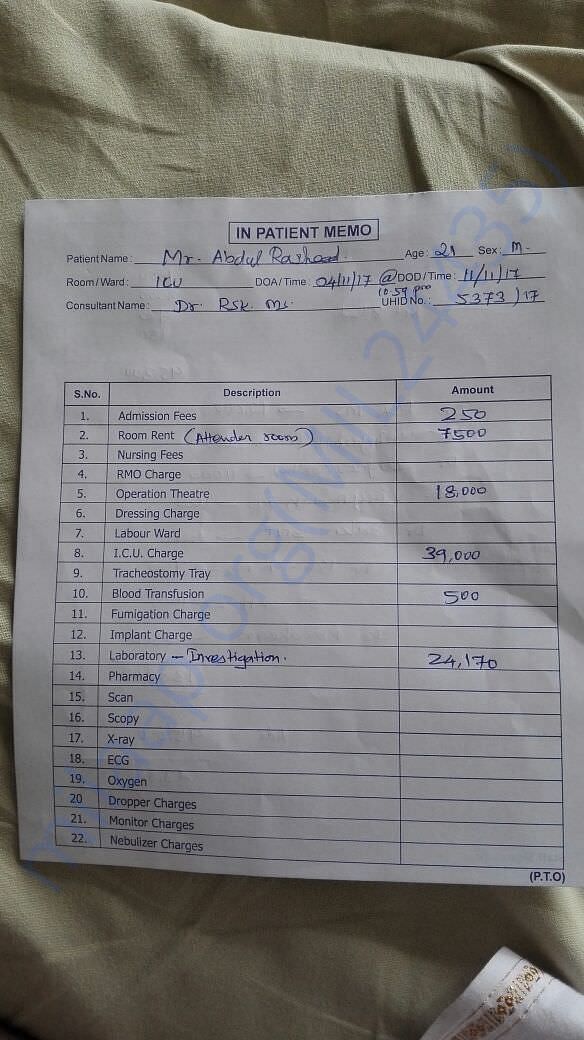 IN PATIENT MEMO
Patient Name : Mr. Abdul Rasheed Age : 21 Sex : M.
Room / Ward : ICU DOA / Time : 04/11/17 @ 10.59 pm DOD / Time : 11/11/17
Consultant Name : Dr. RSK. Ms. UHID No. : 5373/17
S.No. Description Amount
1. Admission Fees 250
2. Room Rent (Attender room) 7500
3. Nursing Fees
4. RMO Charge
5. Operation Theatre 18,000
6. Dressing Charge
7. Labour Ward
8. I.C.U. Charge 39,000
9. Tracheostomy Tray
10. Blood Transfusion 500
11. Fumigation Charge
12. Implant Charge
13. Laboratory – Investigation. 24,170
14. Pharmacy
15. Scan
16. Scopy
17. X-ray
18. ECG
19. Oxygen
20 Dropper Charges
21. Monitor Charges
22. Nebulizer Charges
(P.T.O)